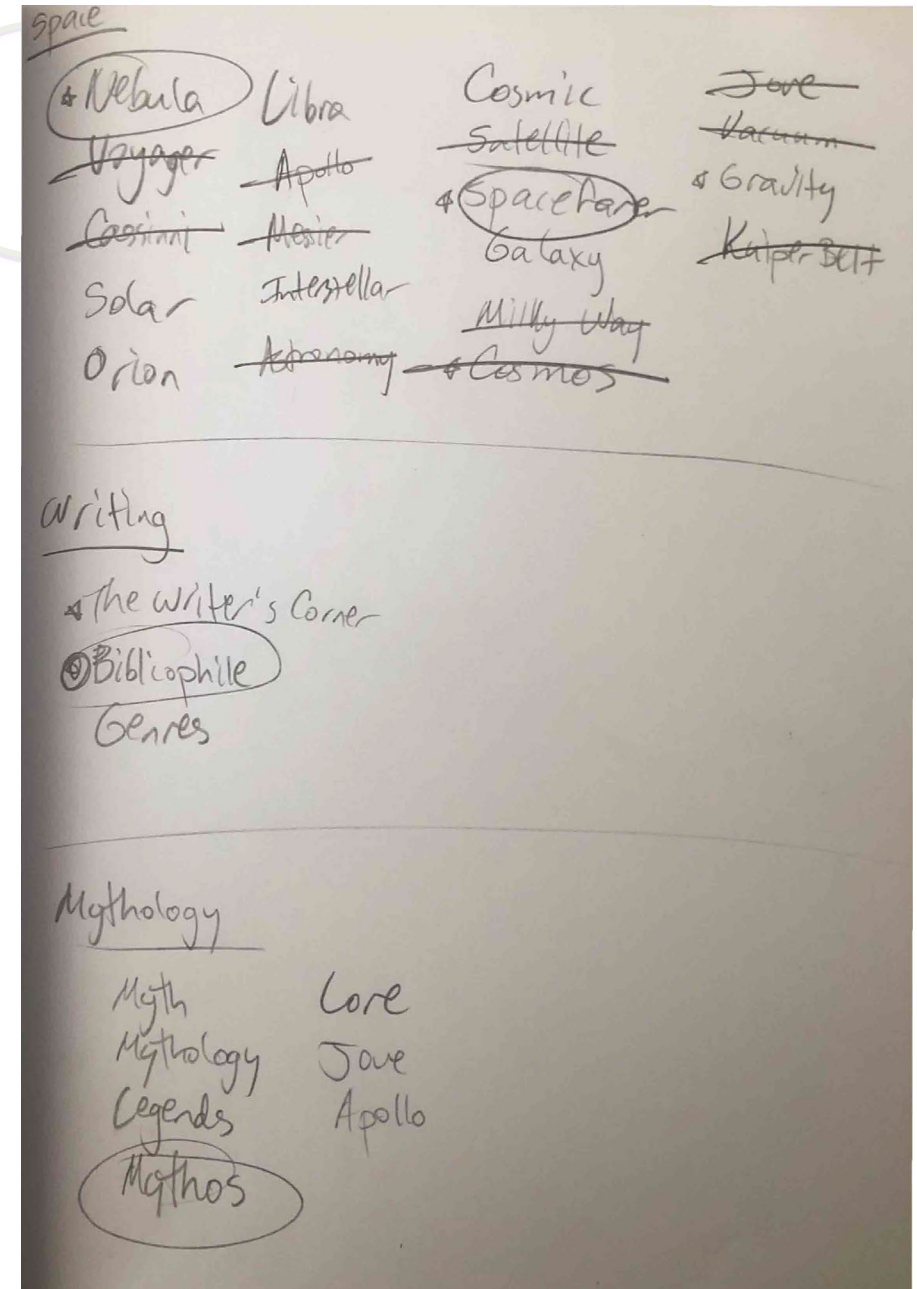 Space
Nebula
Voyager
Cassinni
Solar
Orion
Libra
Apollo
Messier
Interstellar
Astronomy
Cosmic
Satellite
Spacefarer
Galaxy
Milky Way
Cosmos
Jove
Vacuum
Gravity
Kuiper Belt
Writing
The Writer's Corner
Bibliophile
Genres
Mythology
Myth
Mythology
Legends
Mythos
Lore
Jove
Apollo